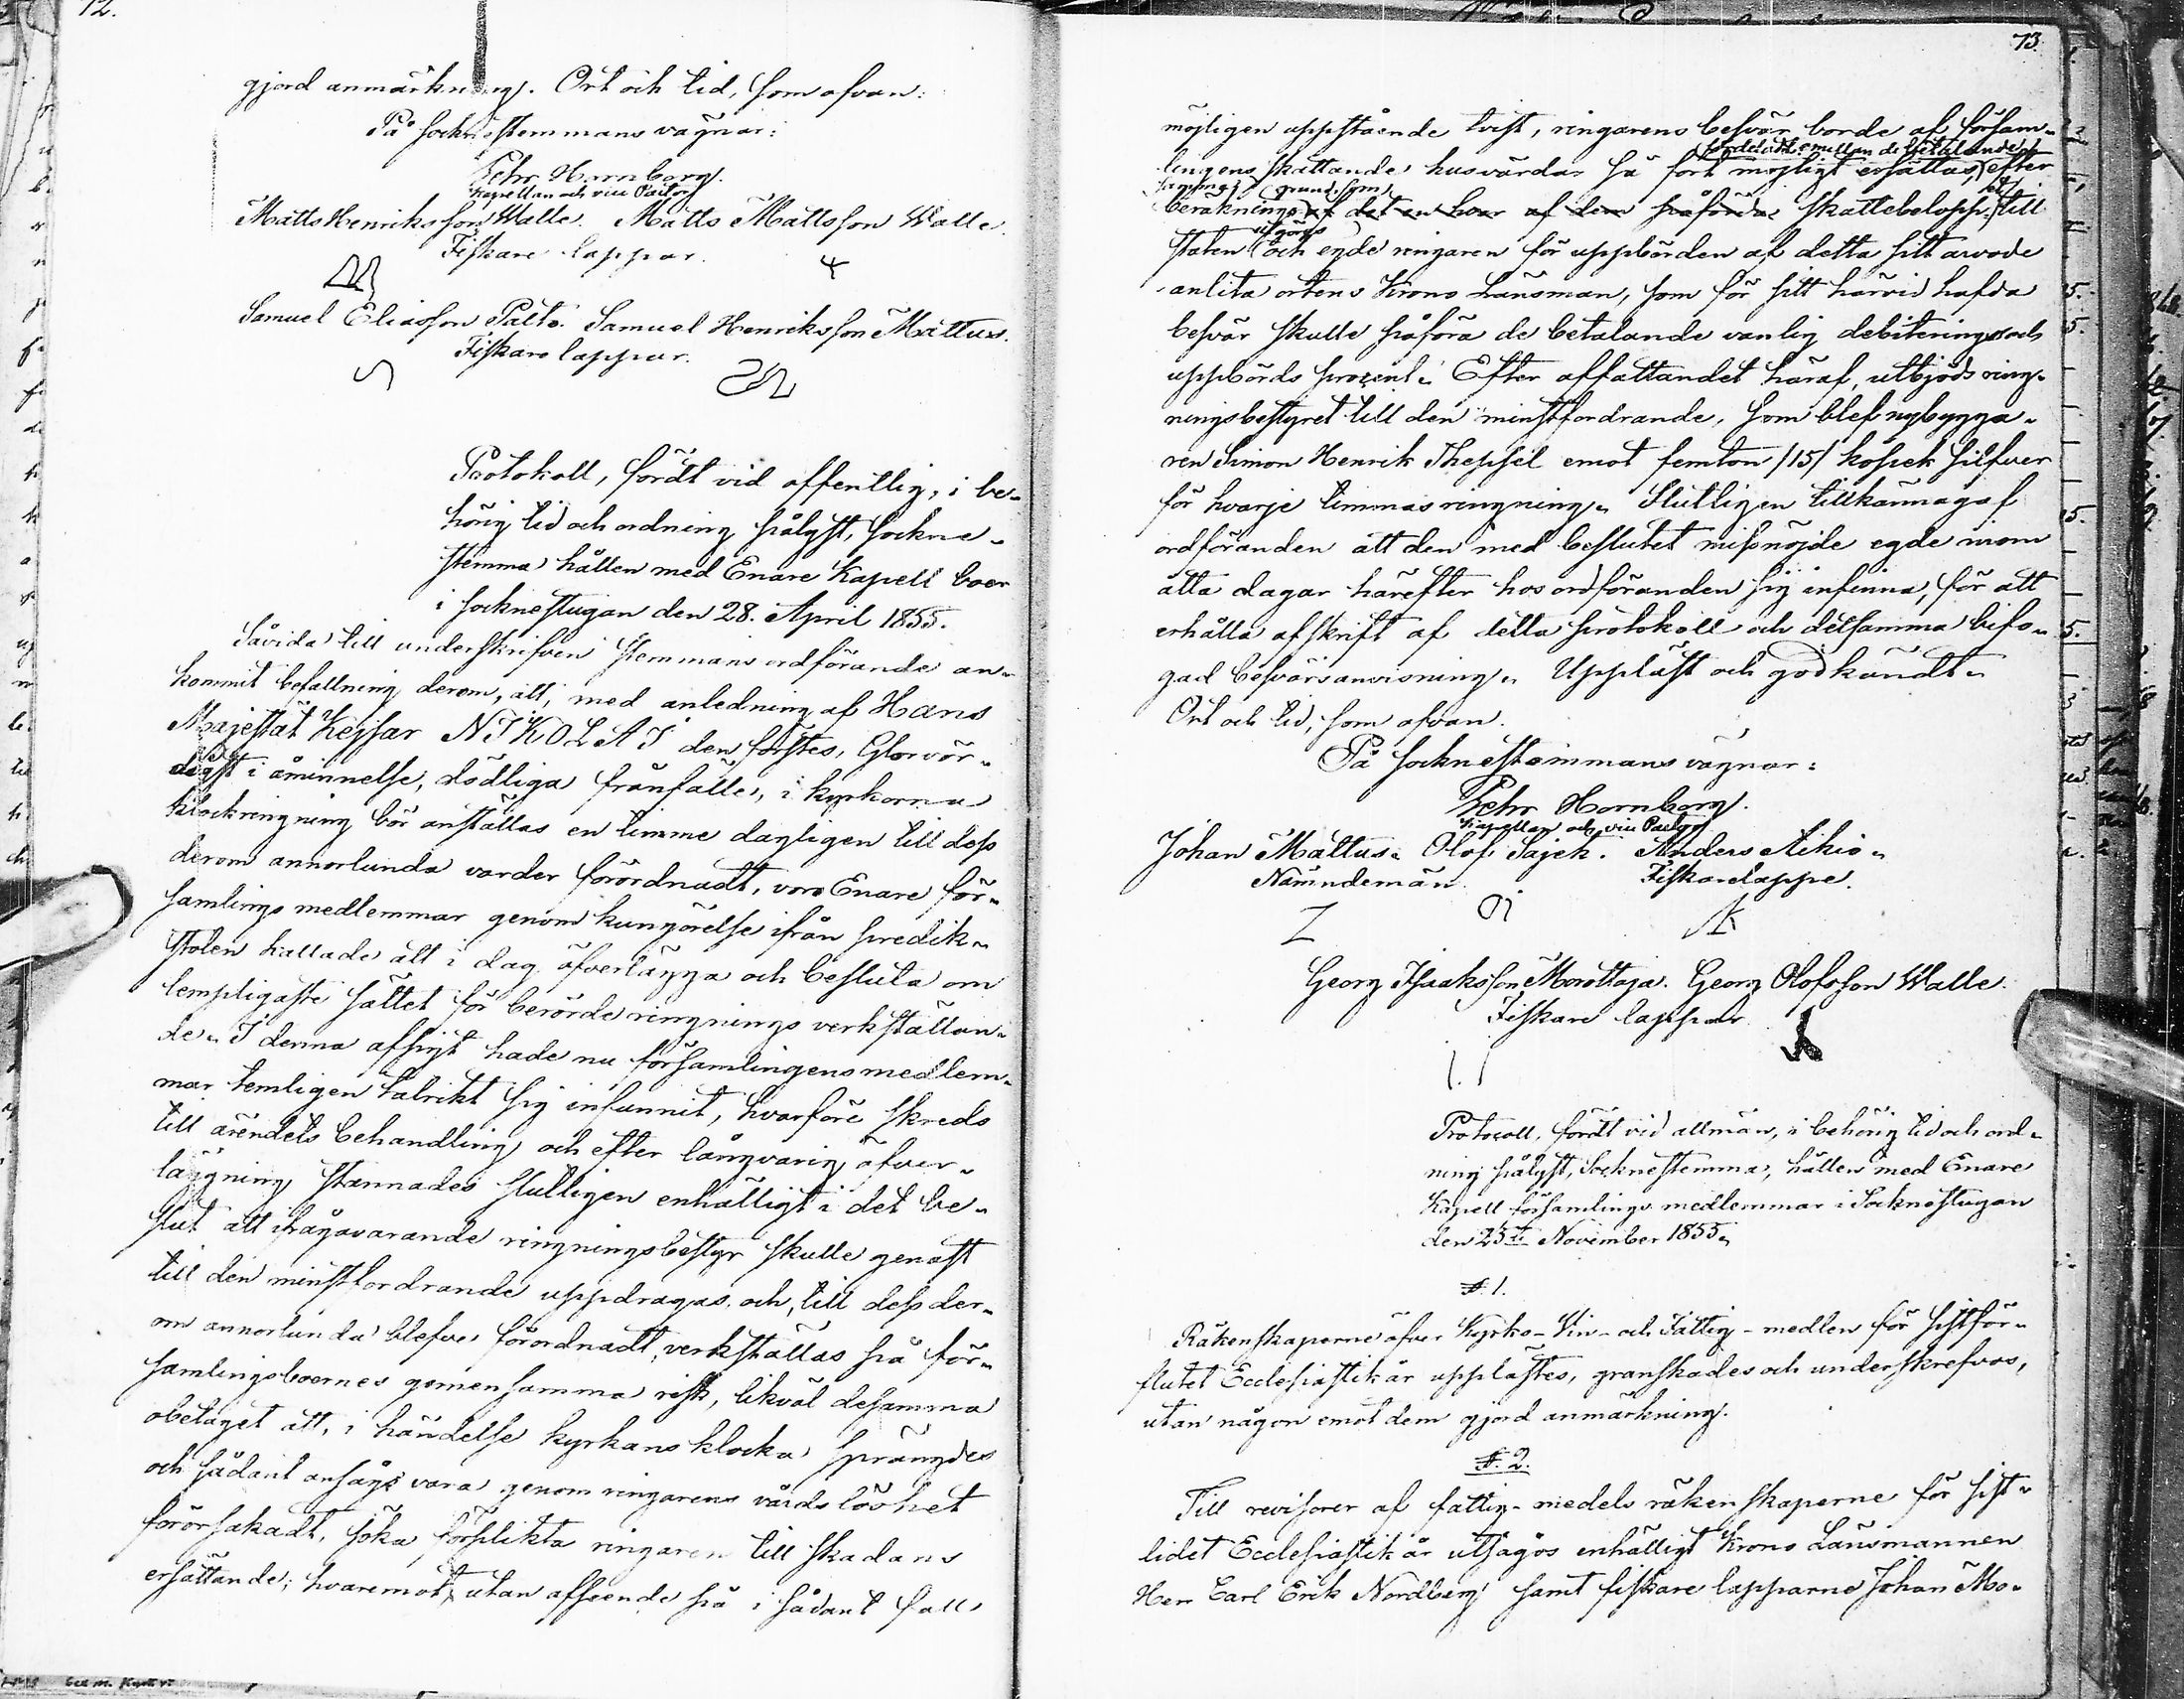 72.
gjord anmärkning. Ort och tid, som ofvan:
På Socknestemmans vägnar:
Pehr Hornborg.
Kapellan och vice Pastor
Matts Henriksson Walle. Matts Mattsson Walle.
Fiskare lappar.
Samuel Eliasson Palto. Samuel Henriksson Mattus.
Fiskare lappar.
Protokoll, fördt vid offentlig, i be-
hörig tid och ordning pålyst, Sockne-
stemma hållen med Enare Kapell boer
i Socknestugan den 28. April 1855.
Såvida till underskrifven stemmans ordförande an-
kommit befallning derom, att, med anledning af Hans
Majestät Kejsar NIKOLAI den förstes, Glorvör-
digst i åminnelse, dödliga frånfälle, i kyrkorna
klockringning bör anställas en timme dagligen till dess
derom annorlunda varder förordnadt, voro Enare för-
samlings medlemmar genom kungörelse ifrån predik-
stolen kallade att i dag öfverlägga och besluta om
lempligaste sättet för berörde ringnings verkställan-
de. I denna afsigt hade nu församlingens medlem-
mar temligen talrikt sig infunnit, hvarföre skreds
till ärendets behandling och efter långvarig öfver-
läggning stannades slutligen enhälligt i det be-
slut att ifrågavarande ringningsbestyr skulle genast
till den minstfordrande uppdragas och, till dess der-
om annorlunda blefve förordnadt, verkställas på för-
samlingsboernes gemensamma risk, likväl desamma
obetaget att, i händelse kyrkans klocka sprängdes
och sådant ansågs vara genom ringarens vårdslöshet
förorsakadt, söka förplikta ringaren till skadans
ersättande; hvaremot, utan afseende på i sådant fall
73.
möjligen uppstående tvist, ringarens besvär borde af försam-
fördeladt emellan de betalande
lingens skattande husvärdar så fort möjligt ersättas, efter
grund, som
beräkning af det en hvar af dem påförda skattebelopp till
utgörs
staten och egde ringaren för uppbörden af detta sitt arvode
anlita ortens Krono Länsman, som för sitt härvid hafda
besvär skulle påföra de betalande vanlig debiterings och
uppbörds procent. Efter affattandet häraf, utbjöds ring-
ningsbestyret till den minstfordrande, som blef nybygga-
ren Simon Henrik Thepsel emot femton /15/ kopek silfver
för hvarje timmas ringning. Slutligen tillkännagaf
ordföranden att den med beslutet missnöjde egde inom
åtta dagar härefter hos ordföranden sig infinna, för att
erhålla afskrift af detta protokoll och detsamma bifo-
gad besvärsanvisning. Uppläst och godkändt.
Ort och tid, som ofvan.
På Socknestemmans vägnar:
Pehr Hornborg.
Kapellan och vice Pastor
Johan Mattus. Olof Sajek. Anders Aikio.
Nämndemän. Fiskarelappe.
Georg Isaksson Morottaja. Georg Olofsson Walle.
Fiskare lappar
Protocoll, fördt vid allmän, i behörig tid och ord-
ning pålyst, Socknestemma, hållen med Enare
Kapell församlings medlemmar i Socknestugan
den 25te November 1855.
§. 1.
Räkenskaperne öfver Kyrko- Vin- och Fattig-medlen för sistför-
flutet Ecclesiastik år upplästes, granskades och underskrefvos,
utan någon emot dem gjord anmärkning.
§. 2.
Till revisorer af fattig-medels räkenskaperne för sist-
lidet Ecclesiastik år utsågos enhälligt Krono Länsmannen
Herr Carl Erik Nordberg samt fiskare lapparne Johan Mo-